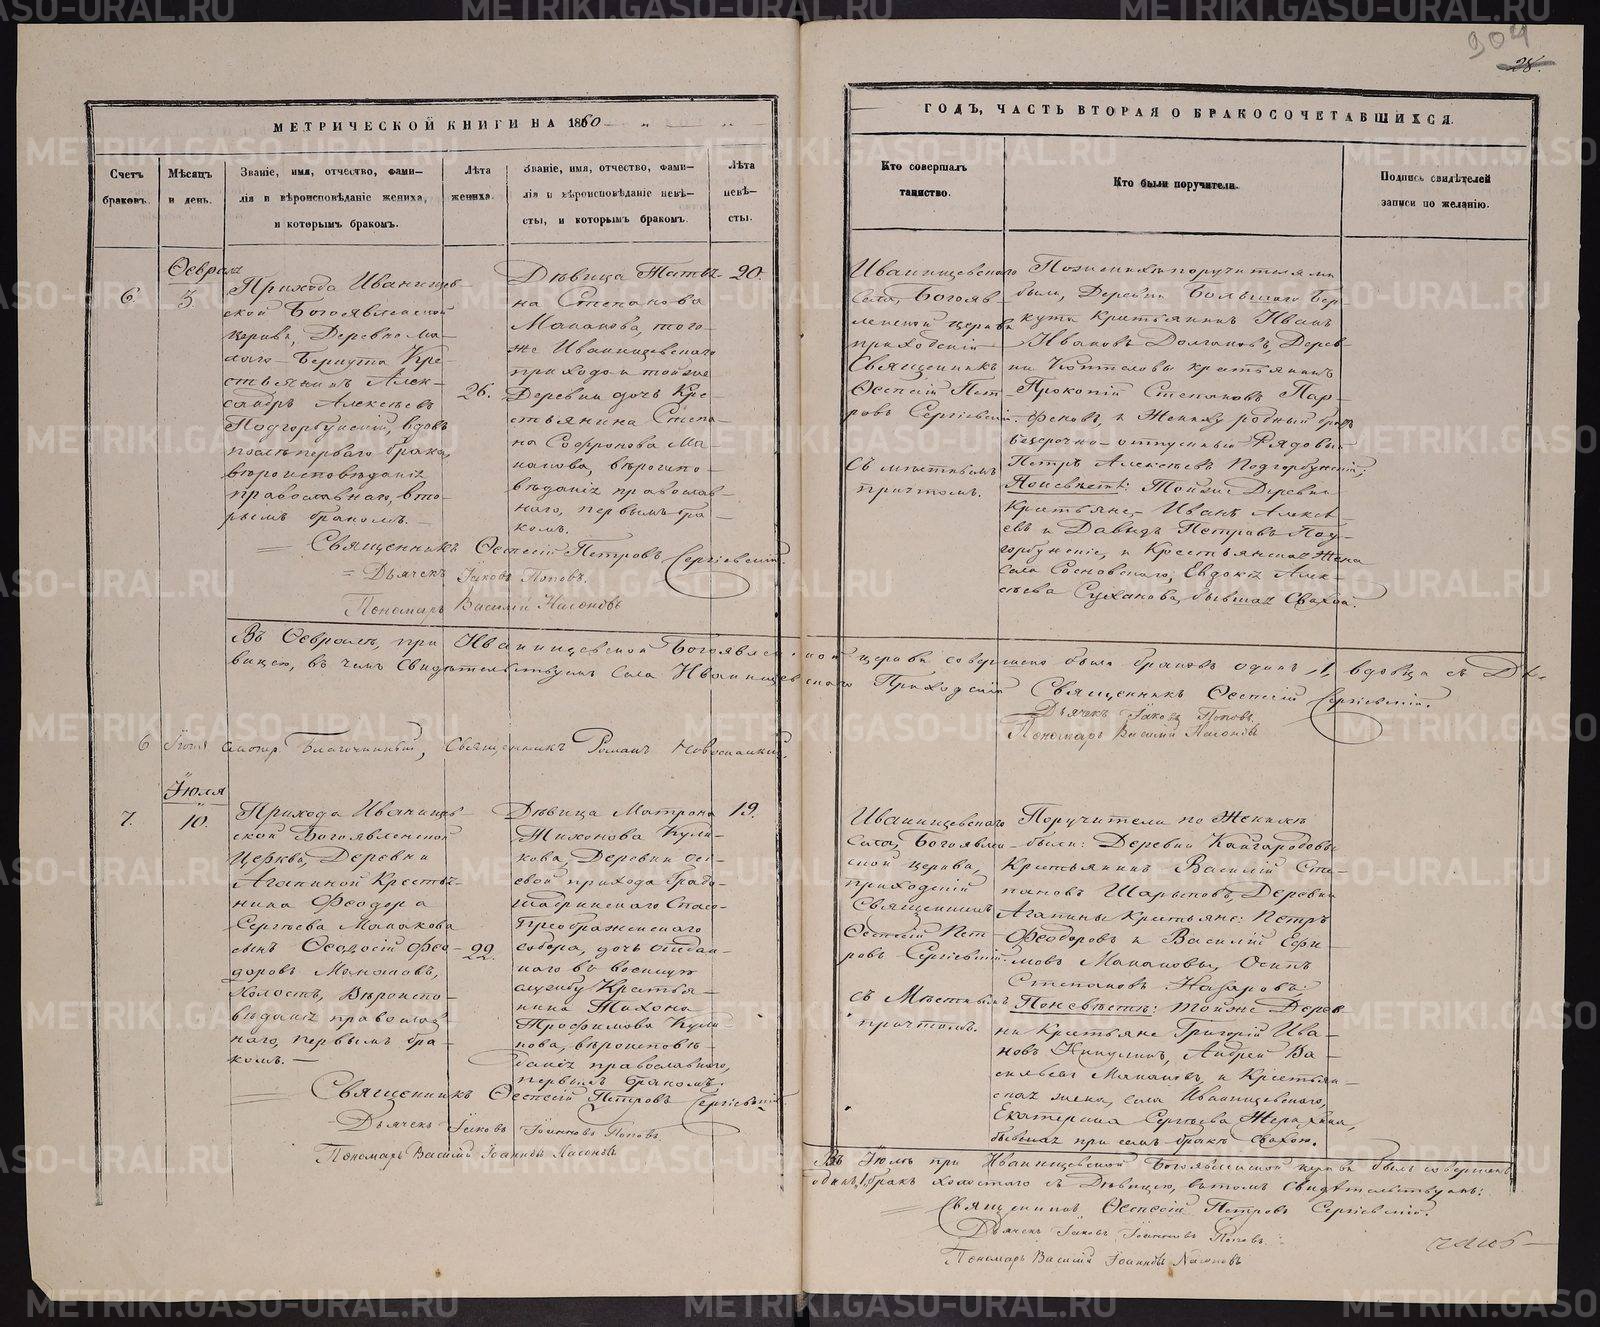 904
28.
МЕТРИЧЕСКОЙ КНИГИ НА 1860
ГОДЪ, ЧАСТЬ ВТОРАЯ О БРАКОСОЧЕТАВШИХСЯ.
Счетъ
браковъ.
Мѣсяцъ
и день.
Званіе, имя, отчество, фами-
лія и вѣроисповѣданіе жениха,
и которымъ бракомъ.
Лѣта
жениха.
Званіе, имя, отчество, фами-
лія и вѣроисповѣданіе невѣ-
сты, и которымъ бракомъ.
Лѣта
невѣ-
сты.
Кто совершалъ
таинство.
Кто были поручители.
Подпись свидѣтелей
записи по желанію.
6.
Февраля
3.
Прихода Иванищев-
ской Богоявленской
церкви, Деревни Ма-
лаго Беркута Кре-
стьянинъ Алек-
сандръ Алексѣевъ
Подгорбунскій, вдовъ
послѣ перваго брака,
вѣроисповѣданія
православнаго, вто-
рымъ бракомъ.
26.
Дѣвица Татья-
на Степанова
Маканова, того-
же Иванищевскаго
прихода и тойже
Деревни дочь Кре-
стьянина Степа-
на Софронова Ма-
канова, вѣроиспо-
вѣданія православ-
наго, первымъ бра-
комъ.
20.
Священникъ Ѳеопсій Петровъ Сергіевскій.
Дьячекъ Іаковъ Поповъ.
Пономарь Василій
Иванищевскаго
Села, Богояв-
ленской церкви
приходскій
Священникъ
Пет-
ровъ Сергіевскій.
съ мѣстнымъ
причтомъ.
По женихѣ поручителями
были, Деревни Большаго Бер-
кута Крестьянинъ Иванъ
Ивановъ Долгановъ, Дерев-
ни крестьянинъ
Прокопій Степановъ Пар-
феновъ, и Жениху родный братъ
безсрочно-отпускный Рядовый
Петръ Алексѣевъ Подгорбунскій;
По невѣстѣ: Тойже Деревни
Крестьяне, Иванъ Алексѣ-
евъ и Давыдъ Петровъ Под-
горбунскіе, и Крестьянская Жена
села Сосновскаго, Евдокія Алек-
сѣева Суханова, бывшая Свахой.
Въ Февралѣ, при Иванищевской Богоявленской церкви совершено было браковъ одинъ 1, вдовца съ Дѣ-
вицею, въ чемъ Свидѣтельствуемъ Села Иванищевскаго Приходскій Священникъ Сергіевскій.
Дьячекъ Іаковъ Поповъ.
Пономарь Василій
6 Іюля смотр. Благочинный, Священникъ Романъ
7.
Іюля
10.
Прихода Иванищев-
ской Богоявленской
Церкви, Деревни
Агапиной Крестья-
нина Феодора
Сергѣева Маканова
сынъ Ѳеодосій Фео-
доровъ Макановъ,
Холостъ, Вѣроиспо-
вѣданія православ-
наго, первымъ бра-
комъ.
22.
Дѣвица Матрона
Тихонова Кули-
кова, Деревни Осе-
евой прихода Градо-
Шадринскаго Спасо-
Преображенскаго
Собора, дочь отдан-
наго въ военную
службу Крестья-
нина Тихона
Трофимова Кули-
кова, вѣроисповѣ-
данія православнаго,
первымъ бракомъ.
19.
Священникъ Петровъ Сергіевскій
Дьячекъ Іаковъ Іоанновъ Поповъ.
Пономарь Василій Іоанновъ
Иванищевскаго
Села, Богоявлен-
ской церкви,
приходскій
Священникъ
Пет-
ровъ Сергіевскій.
съ Мѣстнымъ
причтомъ.
Поручители по Женихѣ
были: Деревни Кайгородовой
Крестьянинъ Василій Сте-
пановъ Шарыповъ, Деревни
Агапины Крестьяне: Петръ
Феодоровъ и Василій Ефи-
мовъ Макановы, Осипъ
Степановъ Назаровъ:
По невѣстѣ: тойже Дерев-
ни Крестьяне Григорій Ива-
новъ Никулинъ, Андрей Ва-
сильевъ Макановъ, и Крестьян-
ская жена, села Иванищевскаго,
Екатерина Сергѣева
бывшая при семъ бракѣ Свахою.
Въ Іюлѣ при Иванищевской Богоявленской церкви былъ совершенъ
одинъ 1 бракъ холостаго съ Дѣвицею, въ томъ Свидѣтельствуемъ:
Священникъ Петровъ Сергіевскій.
Дьячекъ Іаковъ Іоанновъ Поповъ.
Пономарь Василій Іоанновъ